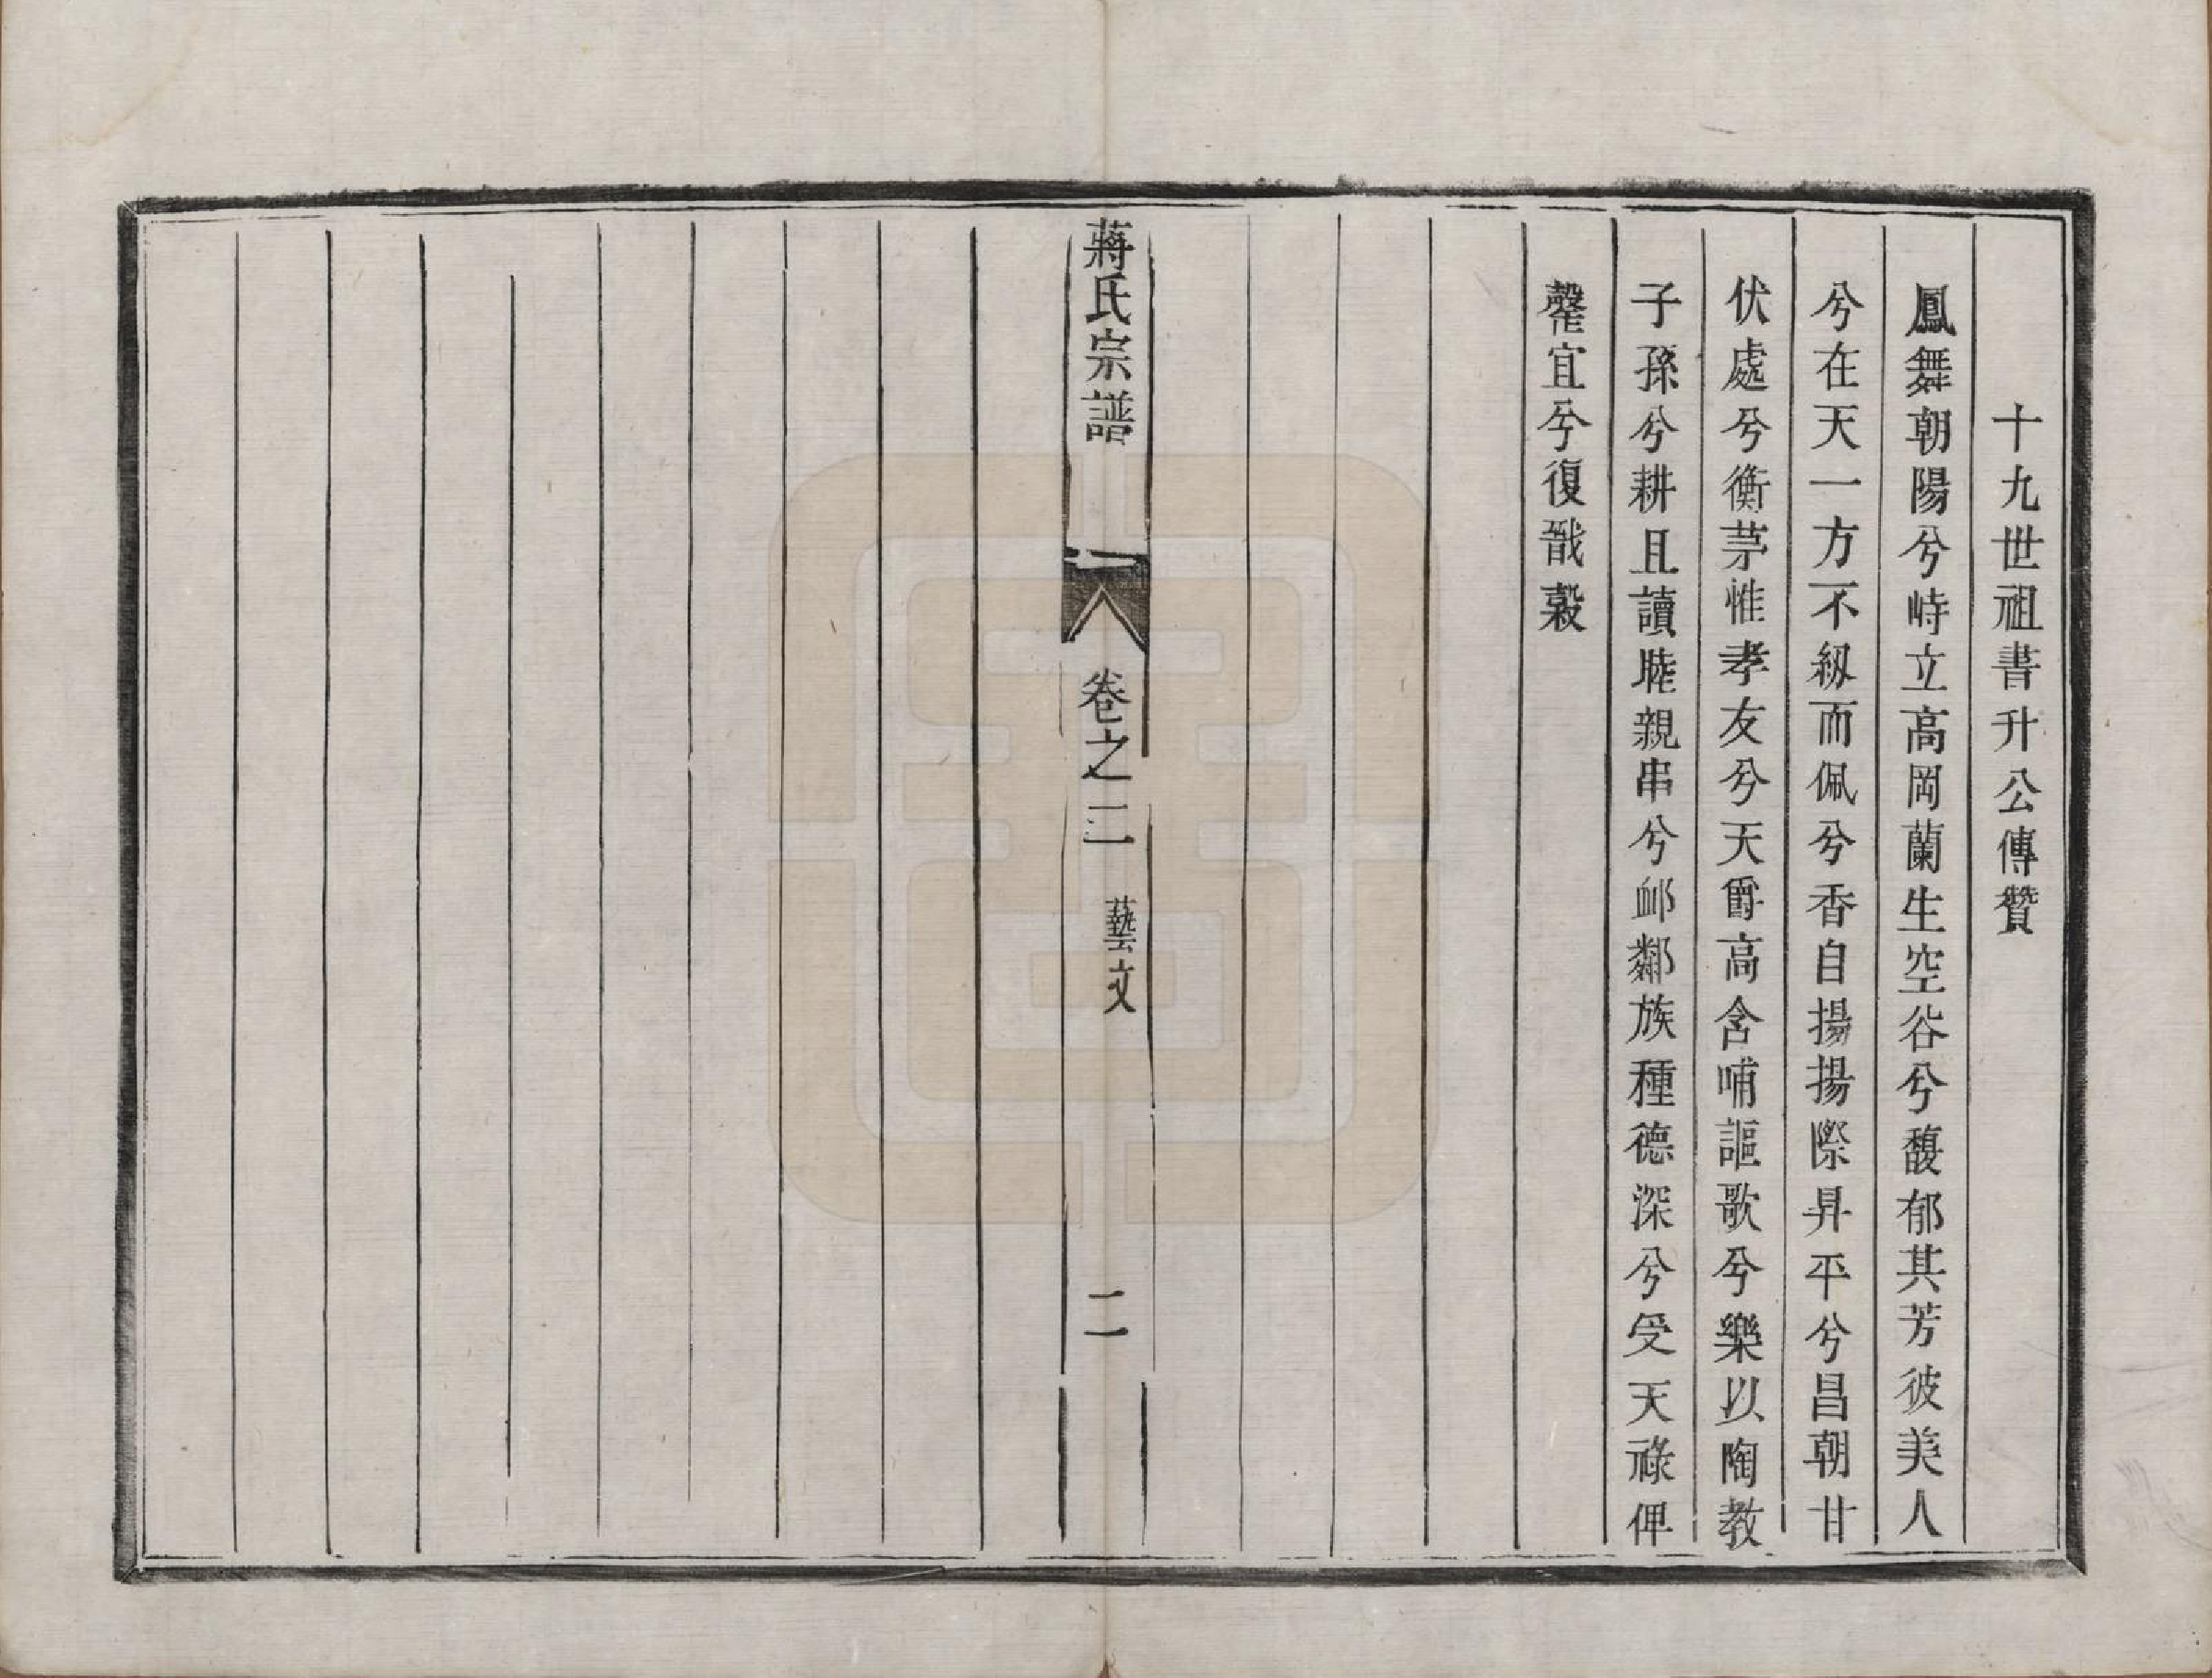 十九世祖書升公傳贊
鳳舞朝陽兮峙立高岡蘭生空谷兮馥郁其芳彼美人
兮在天一方不紉而佩兮香自揚揚際昇平兮昌朝甘
伏處兮衡茅惟孝友兮天爵高含哺謳歌兮樂以陶教
子孫兮耕且讀睦親串兮卹鄰族種德深兮受天祿俾
罄宜兮復戩榖
蔣氏宗譜 卷之二 藝文 二